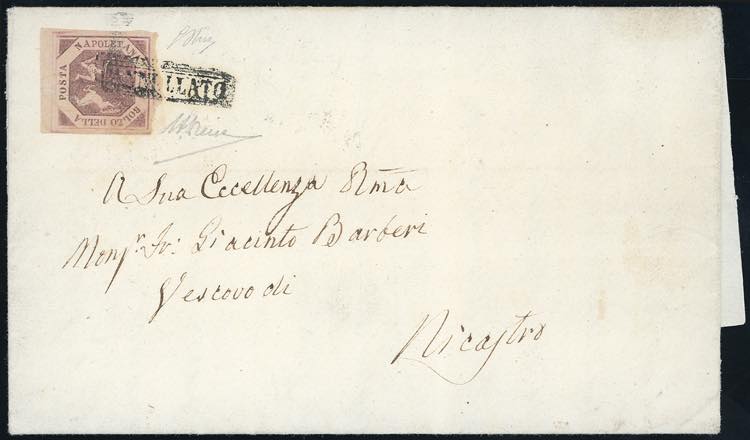 BOLLO DELLA
POSTA
NAPOLETANA
ANNULLATO
A Sua Eccellenza Rma
Monsr. Fr: Giacinto Barberi
Vescovo di
Nicastro